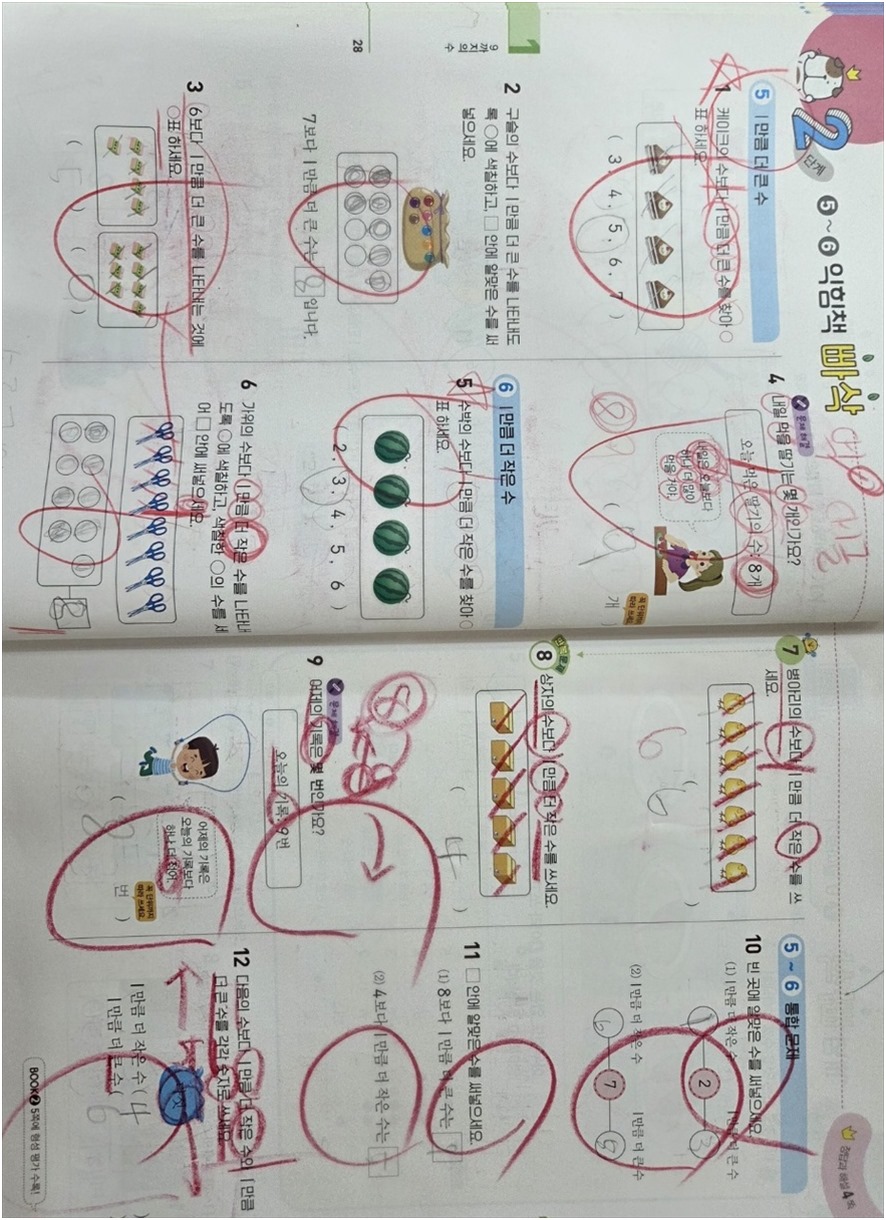 2
단계
5~6 익힘책 빠삭
5 1만큼 더 큰 수
1 케이크의 수보다 1만큼 더 큰 수를 찾아 ○
표 하세요.
( 3, 4, 5, 6, 7 )
2 구슬의 수보다 1만큼 더 큰 수를 나타내도
록 ○에 색칠하고, □ 안에 알맞은 수를 써
넣으세요.
7보다 1만큼 더 큰 수는 8 입니다.
3 6보다 1만큼 더 큰 수를 나타내는 것에
○표 하세요.
( ) ( )
문제 해결
4 내일 먹을 딸기는 몇 개인가요?
오늘 먹은 딸기의 수: 8개
내일은 오늘보다
하나 더 많이
먹을 거야.
꼭 단위까지
따라 쓰세요.
( 9 개 )
8
6 1만큼 더 작은 수
5 수박의 수보다 1만큼 더 작은 수를 찾아 ○
표 하세요.
( 2, 3, 4, 5, 6 )
6 가위의 수보다 1만큼 더 작은 수를 나타내
도록 ○에 색칠하고, 색칠한 ○의 수를 세
어 □ 안에 써넣으세요.
8
1
9까지의 수
28
7 병아리의 수보다 1만큼 더 작은 수를 쓰
세요.
( 6 )
6
8 상자의 수보다 1만큼 더 작은 수를 쓰세요.
( 4 )
문제 해결
9 어제의 기록은 몇 번인가요?
오늘의 기록: 9번
어제의 기록은
오늘의 기록보다
하나 더 적어.
꼭 단위까지
따라 쓰세요.
( 8 번 )
8
정답과 해설 4쪽
5~6 통합 문제
10 빈 곳에 알맞은 수를 써넣으세요.
(1) 1만큼 더 작은 수 1만큼 더 큰 수
1 2 3
(2) 1만큼 더 작은 수 1만큼 더 큰 수
6 7 8
11 □ 안에 알맞은 수를 써넣으세요.
(1) 8보다 1만큼 더 큰 수는 9
(2) 4보다 1만큼 더 작은 수는
12 다음의 수보다 1만큼 더 작은 수와 1만큼
더 큰 수를 각각 숫자로 쓰세요.
1만큼 더 작은 수 ( 4 )
1만큼 더 큰 수 ( 6 )
BOOK 2 5쪽에 형성 평가 수록!